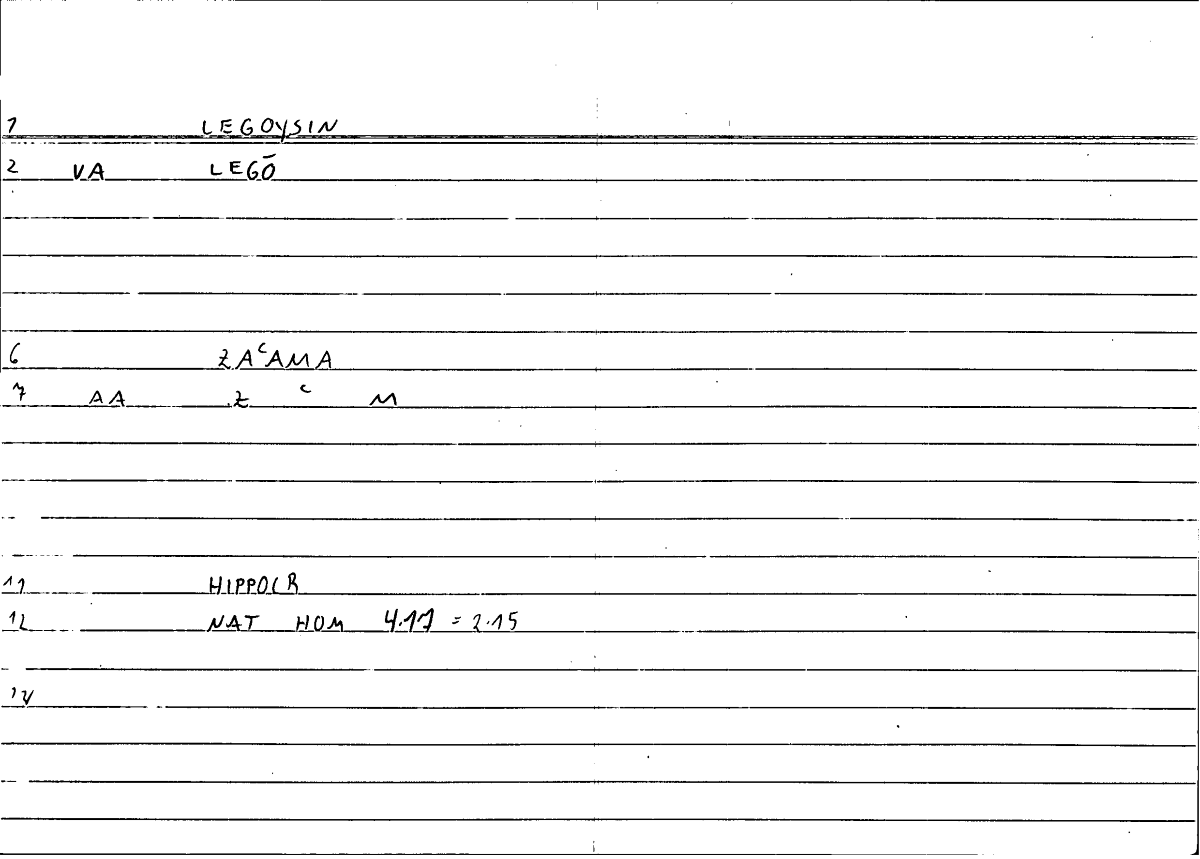 1 LEGOYSIN
2 VA LEGŌ
6 ZAᶜAMA
7 AA Z ᶜ M
11 HIPPOCR
12 NAT HOM 4.11 = 2.15
14